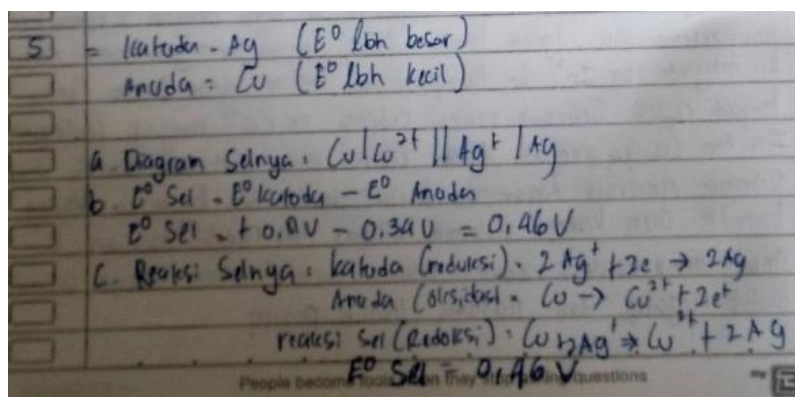 5 = Katoda = Ag (E° lbh besar)
Anoda = Cu (E° lbh kecil)
a. Diagram Selnya = Cu | Cu²⁺ || Ag⁺ | Ag
b. E° Sel = E° Katoda - E° Anoda
E° Sel = + 0,8V - 0.34V = 0,46V
C. Reaksi Selnya = Katoda (reduksi) = 2Ag⁺ + 2e → 2Ag
Anoda (oksidasi = Cu → Cu²⁺ + 2e⁺
reaksi sel (Redoksi) = Cu + 2Ag⁺ → Cu²⁺ + 2Ag
E° Sel = 0,46 V
People become fools when they stop asking questions